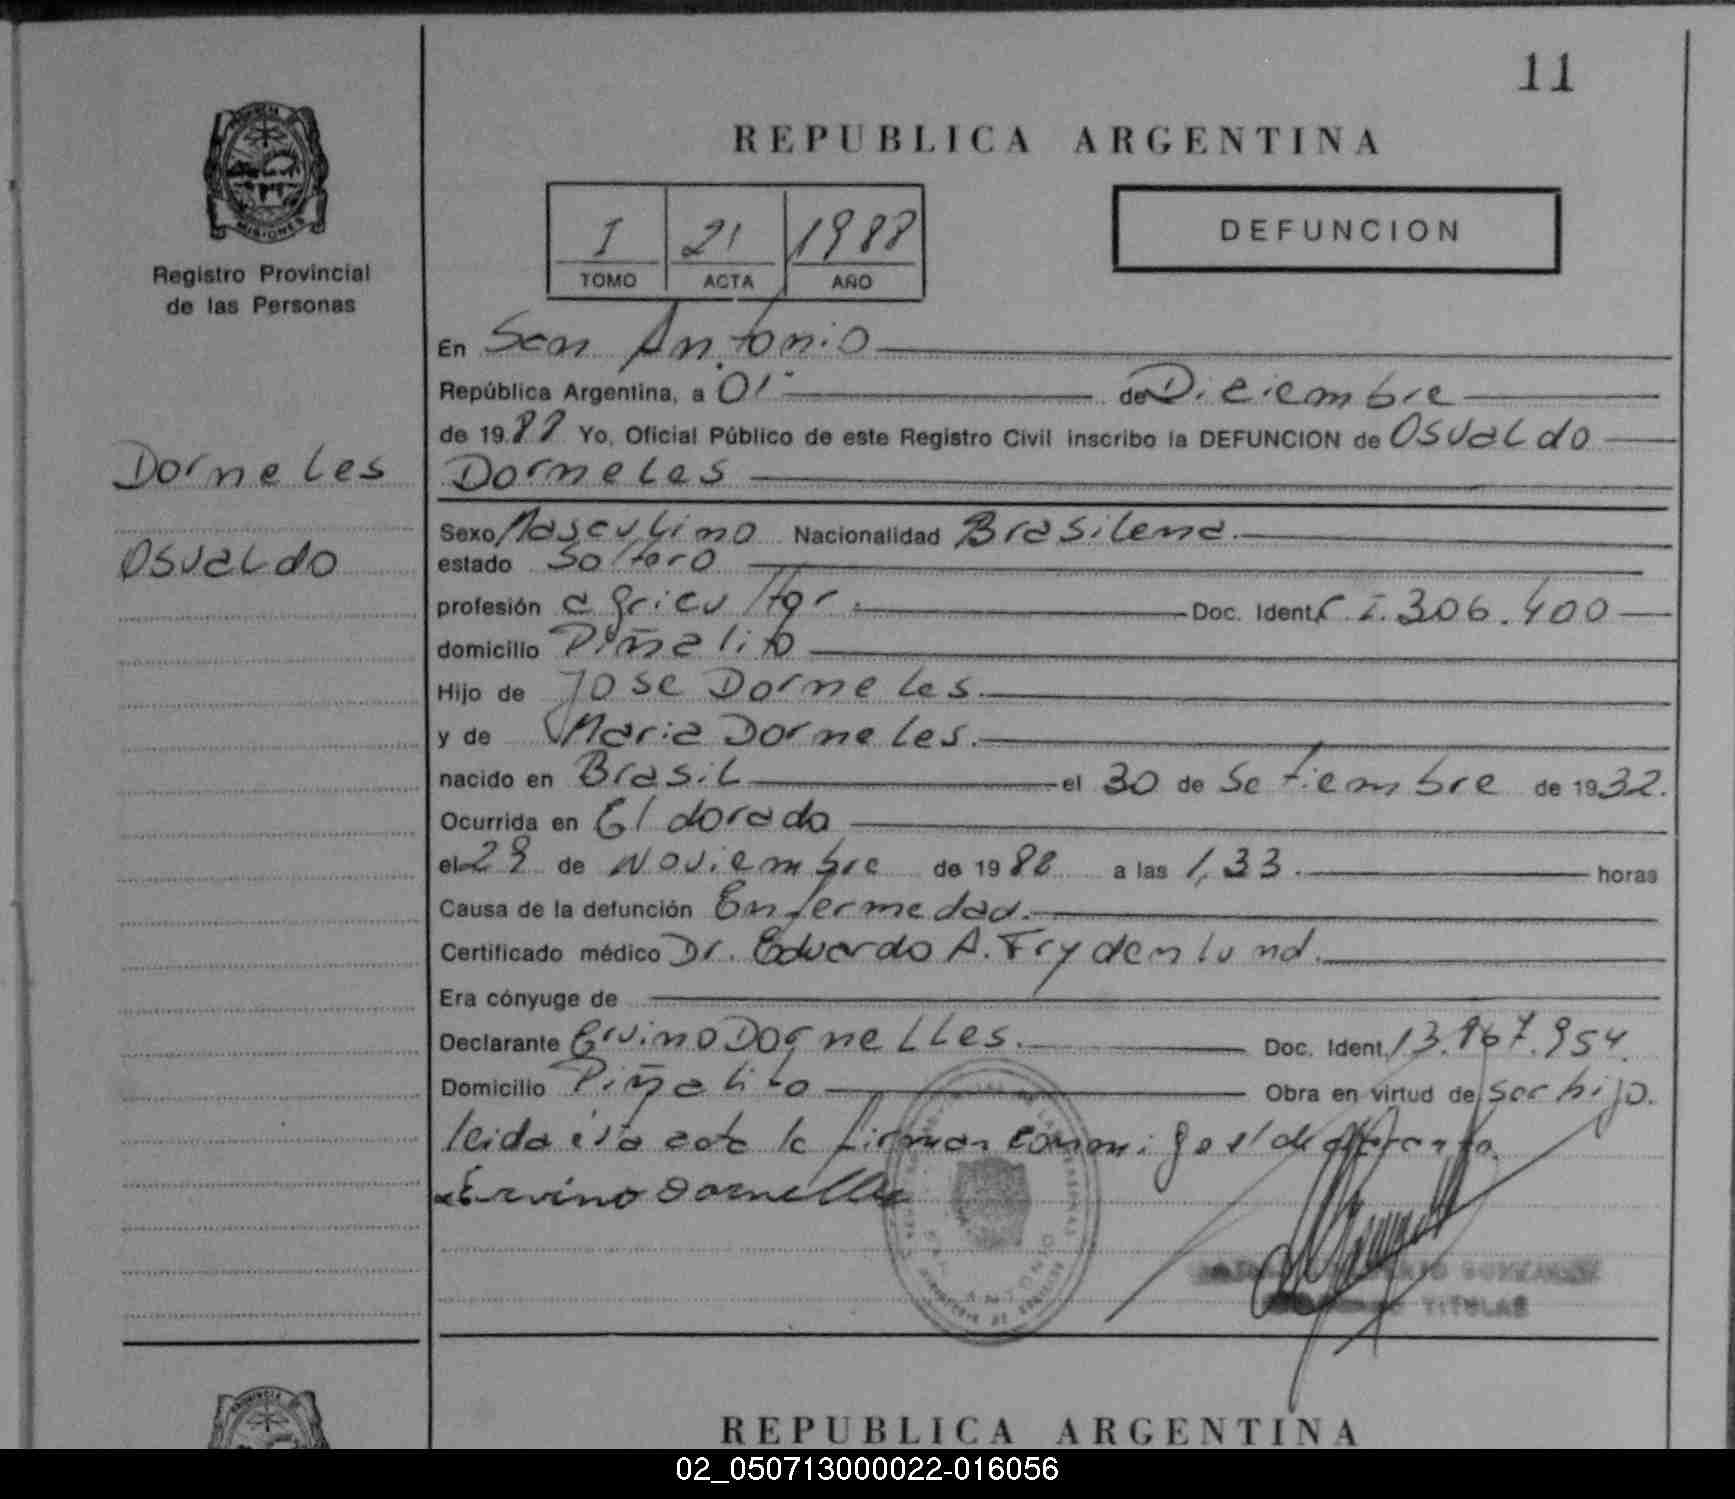 11
PROVINCIA
MISIONES
Registro Provincial
de las Personas
REPUBLICA ARGENTINA
I 21 1988
TOMO ACTA AÑO
DEFUNCION
En San Antonio
República Argentina, a 01 de Diciembre
de 1988 Yo, Oficial Público de este Registro Civil inscribo la DEFUNCION de Osvaldo
Dorneles
Dorneles
Osvaldo
Sexo Masculino Nacionalidad Brasilena.
estado Soltero
profesión agricultor. Doc. Ident. C I. 306.400
domicilio Piñalito
Hijo de Jose Dorneles.
y de Maria Dorneles.
nacido en Brasil el 30 de Setiembre de 1932.
Ocurrida en Eldorado
el 29 de Noviembre de 1988 a las 1,33. horas
Causa de la defunción Enfermedad.
Certificado médico Dr. Eduardo A. Frydenlund.
Era cónyuge de
Declarante Ervino Dornelles. Doc. Ident. 13.867.954.
Domicilio Piñalito Obra en virtud de ser hijo.
leida esta acta la firman conmigo el declarante.
Ervino Dornelles
SAN ANTONIO
TITULAR
PROVINCIA
REPUBLICA ARGENTINA
02_050713000022-016056